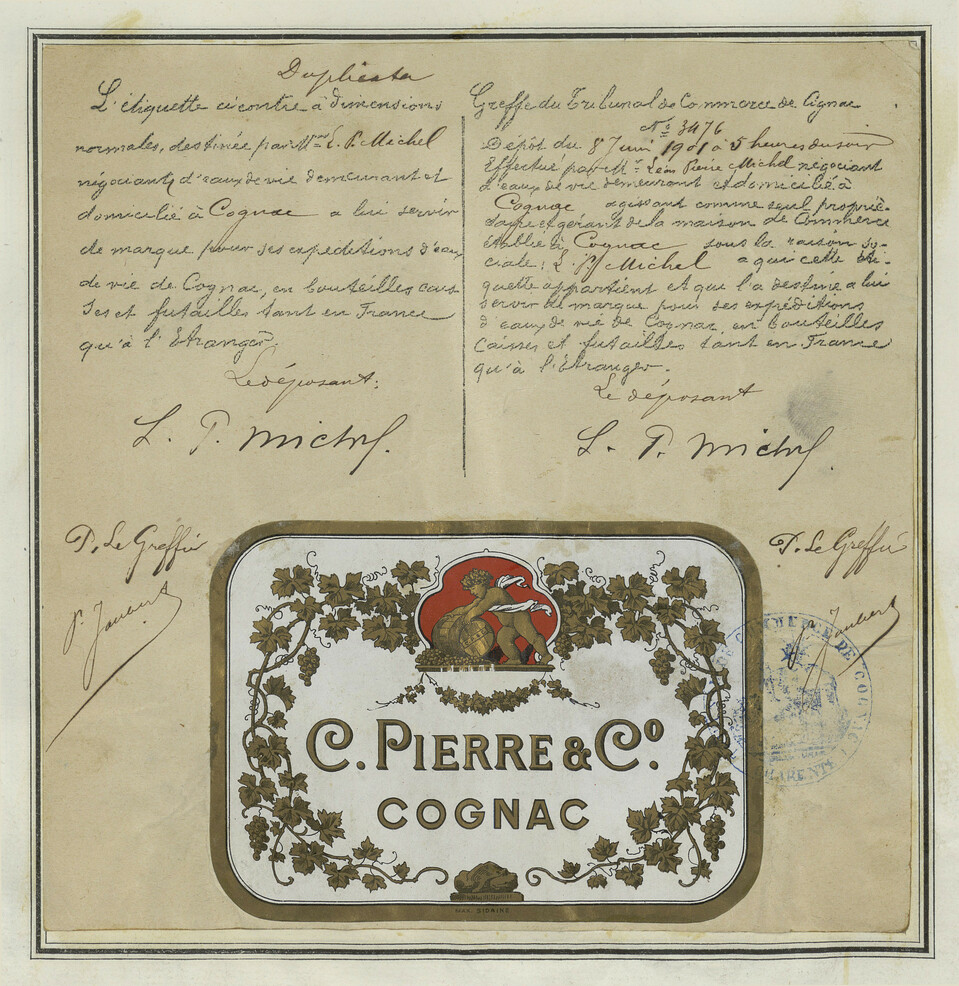 Duplicata
L'étiquette ci contre à dimensions
normales, destinée par Mr L. P. Michel
négociant d'eaux de vie demeurant et
domicilié à Cognac a lui servir
de marque pour ses expéditions d'eau
de vie de Cognac, en bouteilles cais-
ses et futailles tant en France
qu'à l'Etranger.
Le déposant:
L. P. Michel.
Greffe du Tribunal de Commerce de Cognac
No 3476
Dépôt du 8 Juin 1901 à 5 heures du soir
Effectué par Mr. Léon Pierre Michel négociant
d'eaux de vie demeurant et domicilié à
Cognac agissant comme seul proprié-
taire et gérant de la maison de Commerce
établie à Cognac sous la raison so-
ciale: L. P. Michel a qui cette éti-
quette appartient et qui l'a destiné a lui
servir de marque pour ses expéditions
d'eaux de vie de Cognac en bouteilles
Caisses et futailles tant en France
qu'à l'Etranger.
Le déposant
L. P. Michel.
P. Le Greffier
P. Le Greffier
C. PIERRE & Co.
COGNAC
COMMERCE DE COGNAC